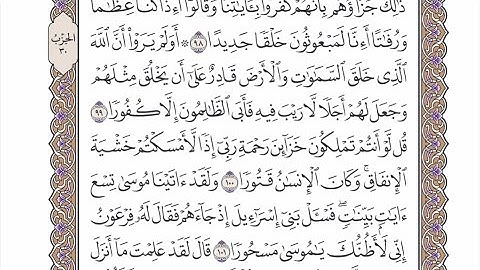 ذَٰلِكَ جَزَآؤُهُم بِأَنَّهُمْ كَفَرُوا۟ بِـَٔايَٰتِنَا وَقَالُوٓا۟ أَءِذَا كُنَّا عِظَٰمًا
وَرُفَٰتًا أَءِنَّا لَمَبْعُوثُونَ خَلْقًا جَدِيدًا ٩٨ ۞ أَوَلَمْ يَرَوْا۟ أَنَّ ٱللَّهَ
ٱلَّذِى خَلَقَ ٱلسَّمَٰوَٰتِ وَٱلْأَرْضَ قَادِرٌ عَلَىٰٓ أَن يَخْلُقَ مِثْلَهُمْ
وَجَعَلَ لَهُمْ أَجَلًا لَّا رَيْبَ فِيهِ فَأَبَى ٱلظَّٰلِمُونَ إِلَّا كُفُورًا ٩٩
قُل لَّوْ أَنتُمْ تَمْلِكُونَ خَزَآئِنَ رَحْمَةِ رَبِّىٓ إِذًا لَّأَمْسَكْتُمْ خَشْيَةَ
ٱلْإِنفَاقِ ۚ وَكَانَ ٱلْإِنسَٰنُ قَتُورًا ١٠٠ وَلَقَدْ ءَاتَيْنَا مُوسَىٰ تِسْعَ
ءَايَٰتٍۭ بَيِّنَٰتٍ ۖ فَسْـَٔلْ بَنِىٓ إِسْرَٰٓءِيلَ إِذْ جَآءَهُمْ فَقَالَ لَهُۥ فِرْعَوْنُ
إِنِّى لَأَظُنُّكَ يَٰمُوسَىٰ مَسْحُورًا ١٠١ قَالَ لَقَدْ عَلِمْتَ مَآ أَنزَلَ
الحزب
٣٠